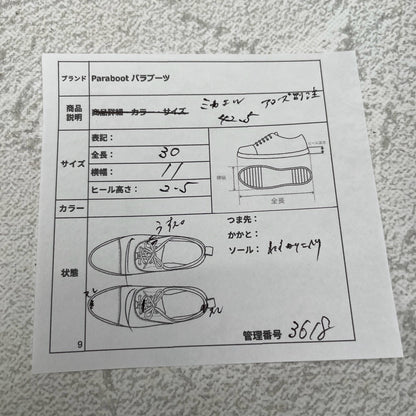 ブランド Paraboot パラブーツ
商品説明 商品詳細 カラー サイズ ミカエル
42.5
サイズ
表記：
全長： 30
横幅： 11
ヒール高さ： 2-5
ヒール高さ
横幅
全長
カラー
状態
つま先：
かかと：
ソール：
スレ
スレ
管理番号 3618
9